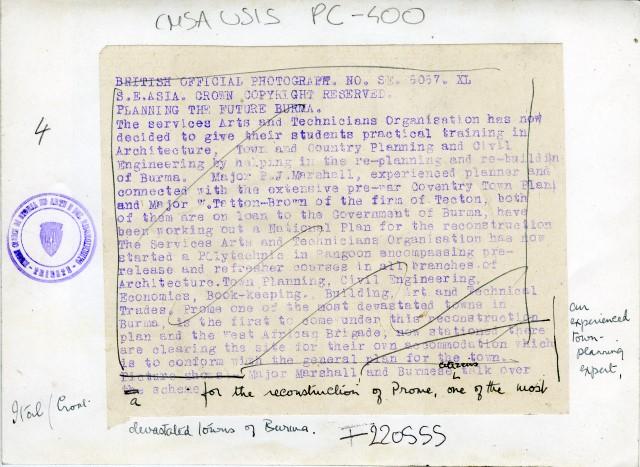 CMSA USIS PC-400
BRITISH OFFICIAL PHOTOGRAPH. NO. SE. 6057. XL
S.E.ASIA. CROWN COPYRIGHT RESERVED.
PLANNING THE FUTURE BURMA.
The services Arts and Technicians Organisation has now
decided to give their students practical training in
Architecture, Town and Country Planning and Civil
Engineering by helping in the re-planning and re-buildin
of Burma. Major P.J.Marshall, experienced planner and
connected with the extensive pre-war Coventry Town Plan
and Major W.Tatton-Brown of the firm of Tecton, both
of them are on loan to the Government of Burma, have
been working out a National Plan for the reconstruction
The Services Arts and Technicians Organisation has now
started a Polytechnic in Rangoon encompassing pre-
release and refresher courses in all branches of
Architecture.Town Planning, Civil Engineering,
Economics, Book-keeping. Building, Art and Technical
Trades. Prome one of the most devastated towns in
Burma, is the first to come under this reconstruction
plan and the West African Brigade, now stationed there
are clearing the site for their own accommodation which
is to conform with the general plan for the town.
Picture shows: Major Marshall and Burmese citizens talk over
the scheme
a for the reconstruction of Prome, one of the most
devastated towns of Burma.
4
an
experienced
town-
planning
expert,
I-220555